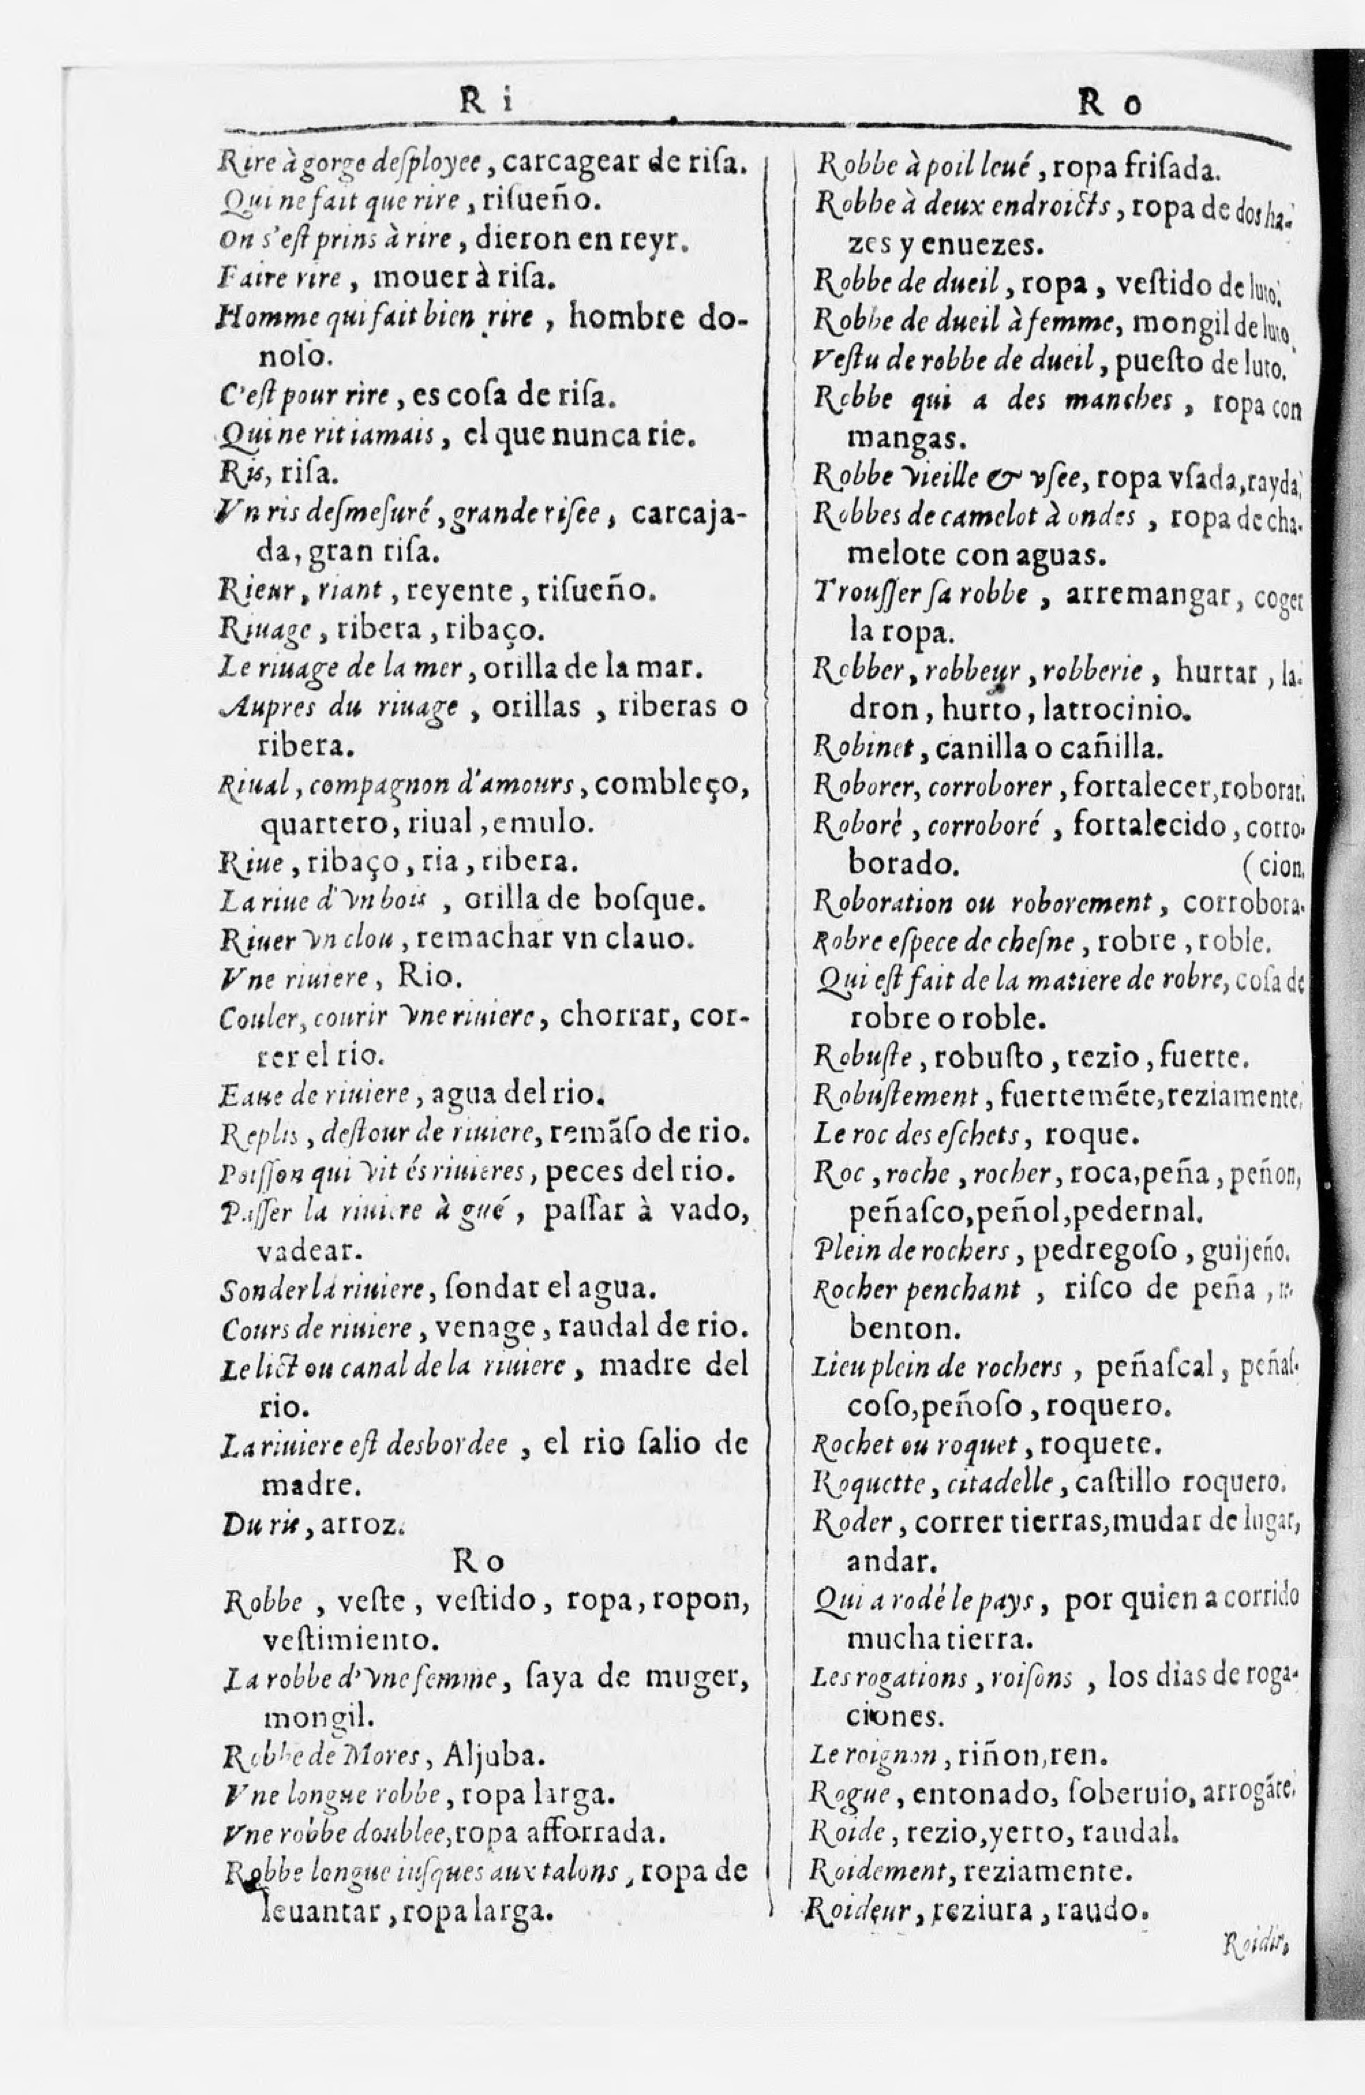 R i
Rire à gorge deſployee, carcagear de riſa.
Qui ne fait que rire, riſueño.
On s'eſt prins à rire, dieron en reyr.
Faire rire, mouer à riſa.
Homme qui fait bien rire, hombre do-
noſo.
C'eſt pour rire, es coſa de riſa.
Qui ne rit iamais, el que nunca rie.
Ris, riſa.
Vn ris deſmeſuré, grande riſee, carcaja-
da, gran riſa.
Rieur, riant, reyente, riſueño.
Riuage, ribera, ribaço.
Le riuage de la mer, orilla de la mar.
Aupres du riuage, orillas, riberas o
ribera.
Riual, compagnon d'amours, combleço,
quartero, riual, emulo.
Riue, ribaço, ria, ribera.
La riue d'vn bois, orilla de boſque.
Riuer vn clou, remachar vn clauo.
Vne riuiere, Rio.
Couler, courir vne riuiere, chorrar, cor-
rer el rio.
Eaue de riuiere, agua del rio.
Replis, deſtour de riuiere, remãſo de rio.
Poiſſon qui vit és riuieres, peces del rio.
Paſſer la riuiere à gué, paſſar à vado,
vadear.
Sonder la riuiere, ſondar el agua.
Cours de riuiere, venage, raudal de rio.
Le lict ou canal de la riuiere, madre del
rio.
La riuiere eſt desbordee, el rio ſalio de
madre.
Du ris, arroz.
R o
Robbe, veſte, veſtido, ropa, ropon,
veſtimiento.
La robbe d'vne femme, ſaya de muger,
mongil.
Robbe de Mores, Aljuba.
Vne longue robbe, ropa larga.
Vne robbe doublee, ropa afforrada.
Robbe longue iuſques aux talons, ropa de
leuantar, ropa larga.
R o
Robbe à poil leué, ropa friſada.
Robbe à deux endroicts, ropa de dos ha-
zes y enuezes.
Robbe de dueil, ropa, veſtido de luto.
Robbe de dueil à femme, mongil de luto.
Veſtu de robbe de dueil, pueſto de luto.
Robbe qui a des manches, ropa con
mangas.
Robbe vieille & vſee, ropa vſada, rayda.
Robbes de camelot à ondes, ropa de cha-
melote con aguas.
Trouſſer ſa robbe, arremangar, coger
la ropa.
Robber, robbeur, robberie, hurtar, la-
dron, hurto, latrocinio.
Robinet, canilla o cañilla.
Roborer, corroborer, fortalecer, roborar.
Roboré, corroboré, fortalecido, corro-
borado. (cion.
Roboration ou roborement, corrobora-
Robre eſpece de cheſne, robre, roble.
Qui eſt fait de la matiere de robre, coſa de
robre o roble.
Robuſte, robuſto, rezio, fuerte.
Robuſtement, fuertemẽte, reziamente.
Le roc des eſchets, roque.
Roc, roche, rocher, roca, peña, peñon,
peñaſco, peñol, pedernal.
Plein de rochers, pedregoſo, guijeño.
Rocher penchant, riſco de peña, re-
benton.
Lieu plein de rochers, peñaſcal, peñaſ-
coſo, peñoſo, roquero.
Rochet ou roquet, roquete.
Roquette, citadelle, caſtillo roquero.
Roder, correr tierras, mudar de lugar,
andar.
Qui a rodé le pays, por quien a corrido
mucha tierra.
Les rogations, roiſons, los dias de roga-
ciones.
Le roignon, riñon, ren.
Rogue, entonado, ſoberuio, arrogãte.
Roide, rezio, yerto, raudal.
Roidement, reziamente.
Roideur, reziura, raudo.
Roidir,